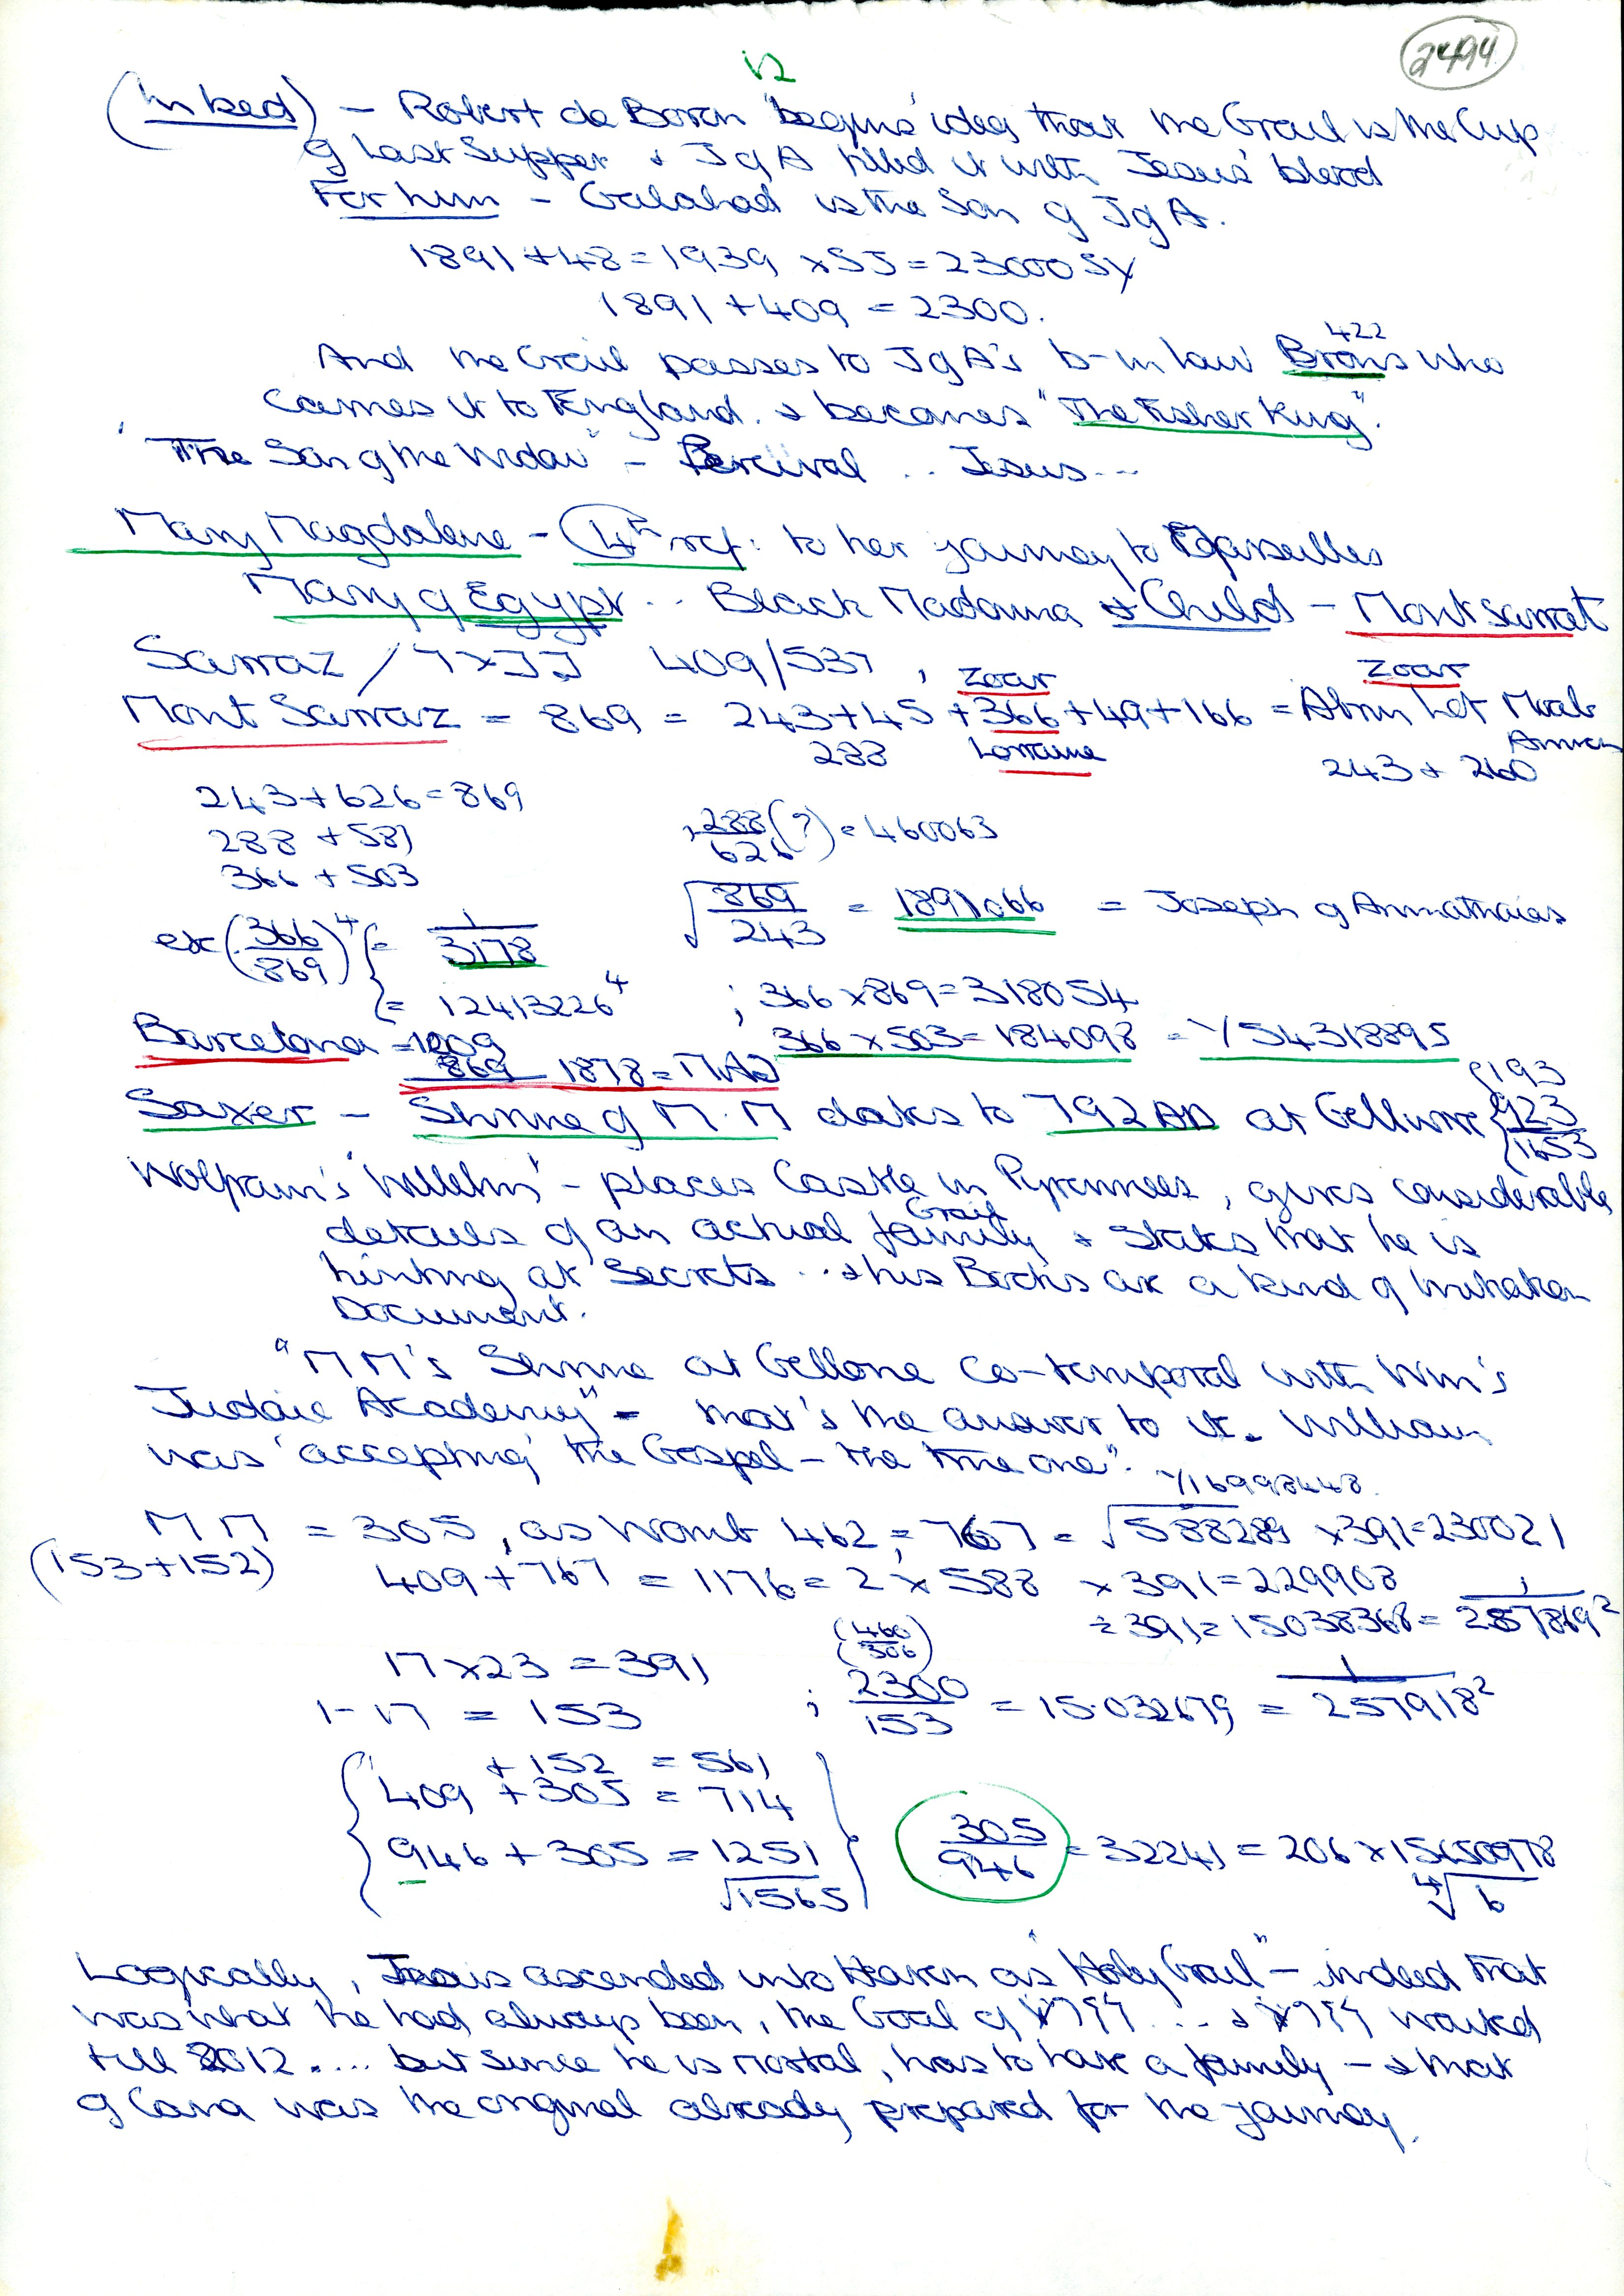 2494
12
(In bed) - Robert de Boron 'begins' idea that the Grail is the Cup
of Last Supper & J of A filled it with Jesus' blood
For him - Galahad is the Son of J of A.
1891 + 48 = 1939 × SJ = 230005Y
1891 + 409 = 2300.
422
And the Grail passes to J of A's b-in law Brons who
carries it to England. & becomes "The Fisher King".
"The Son of the Widow" - Percival .. Jesus...
Mary Magdalene - 4th ref: to her journey to Marseilles
Mary of Egypt .. Black Madonna & Child - Montserrat
Sarraz / 7×JJ 409/537 , Zoar Zoar
Mont Sarraz = 869 = 243+45+366+49+166 = Abrm Lot Moab
288 Lorraine Ammon
243 + 260
243+626=869
288 + 581
366 + 503
288/626 (?) = 460063
√869/243 = 1891066 = Joseph of Arimathaias
ex (366/869)^4 { = 1/3178
= 12413226^4 ; 366×869=318054
Barcelona = 1009 366×503=184098 = √54318895
869 1878 = MAD
Saxer - Shrine of M.M dates to 792 AD at Gellone {193
923
1653
Wolfram's 'Willehm' - places Castle in Pyrennees, gives considerable
details of an actual Grail family & states that he is
hinting at secrets ... & his Books are a kind of Initiation
Document.
"MM's Shrine at Gellone Co-temporal with Wm's
Judaic Academy" - that's the answer to it. William
was 'accepting' the Gospel - the true one".
√16998448
MM = 305, as Womb 462, = 767 = √588289 ×391=230021
(153+152) 409+767 = 1176 = 2×588 ×391=229908
÷391=15038368= 1/257869²
(460/306)
17×23 = 391
1-17 = 153 ; 2300/153 = 15.032679 = 1/257918²
+152 = 561
409 +305 = 714
946 + 305 = 1251 305/946 = 32241 = 206×15650978
√1565 ⁴√6
Logically, Jesus ascended into Heaven as "Holy Grail" - indeed that
was what he had always been, the Goal of ... & waited
till 2012 .... but since he is mortal, has to have a family - & that
of Cana was the original already prepared for the journey.